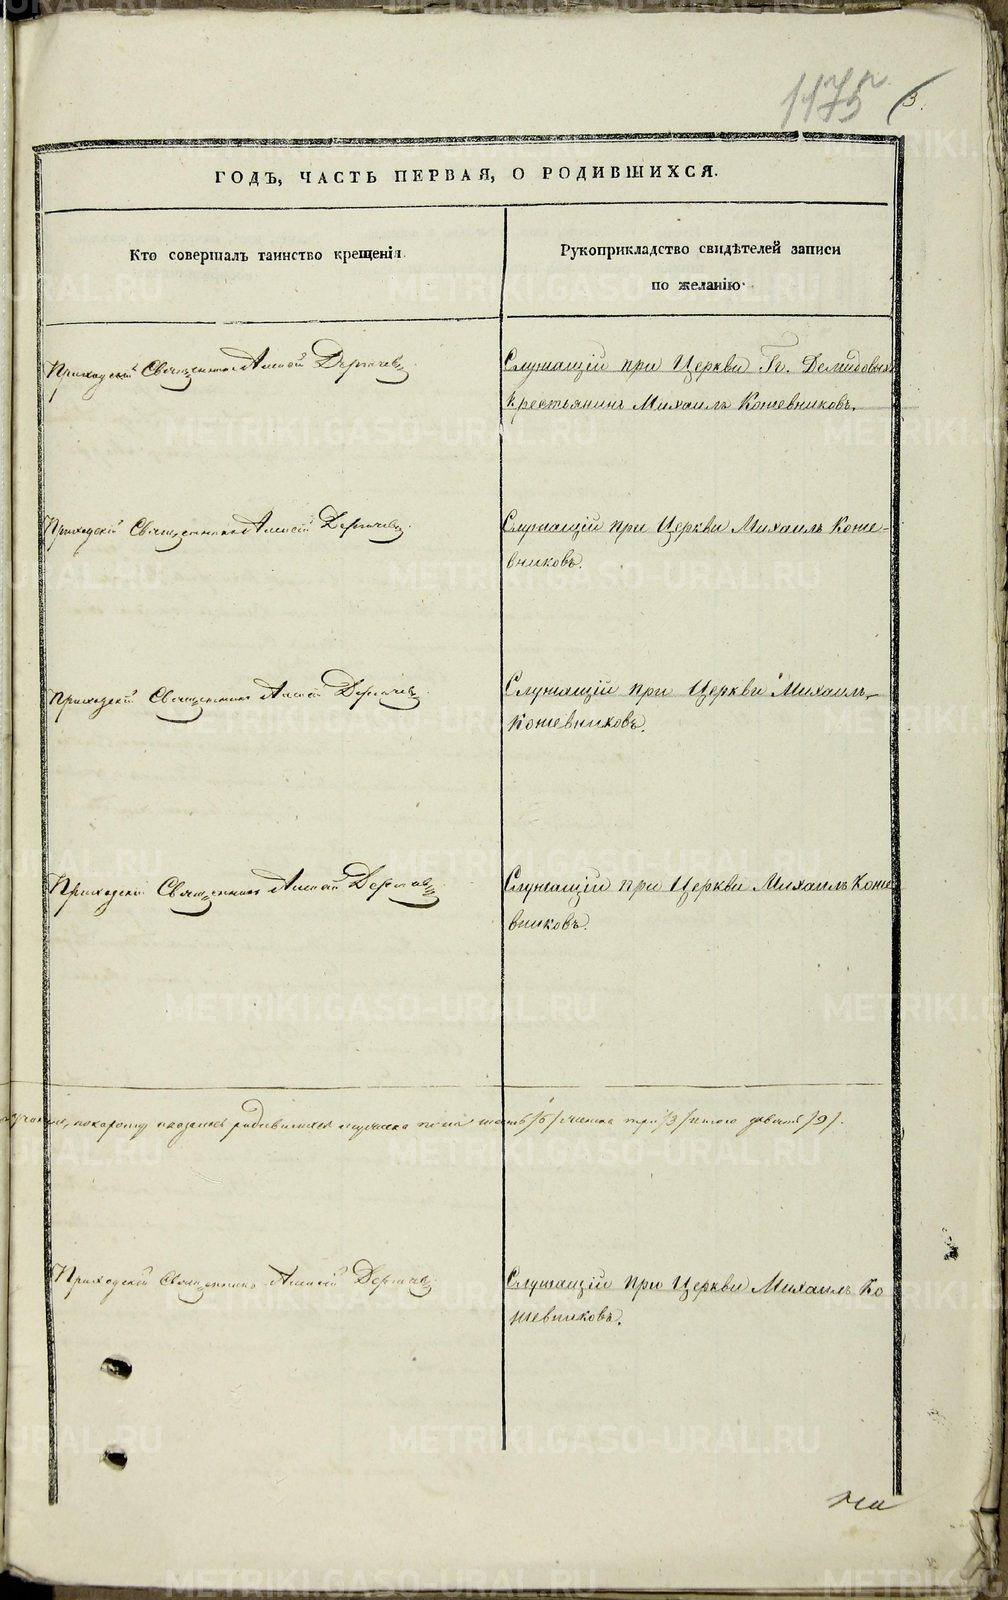 1175
3.
ГОДЪ, ЧАСТЬ ПЕРВАЯ, О РОДИВШИХСЯ.
Кто совершалъ таинство крещенія.
Рукоприкладство свидѣтелей записи
по желанію.
Приходскій Священникъ Алексѣй
Служащій при Церкви Гг. Демидовыхъ
Крестьянинъ Михаилъ Кожевниковъ.
Приходскій Священникъ Алексѣй
Служащій при Церкви Михаилъ Коже-
вниковъ.
Приходскій Священникъ Алексѣй
Служащій при Церкви Михаилъ
Кожевниковъ.
Приходскій Священникъ Алексѣй
Служащій при Церкви Михаилъ Коже
вниковъ.
родившихся /6/ три /3/ итого девять /9/.
Приходскій Священникъ Алексѣй
Служащій при Церкви Михаилъ Ко
жевниковъ.
METRIKI.GASO-URAL.RU